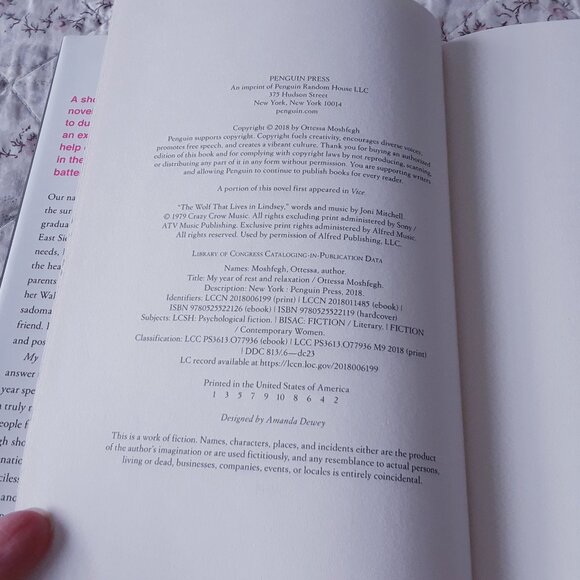 A sho
novel
to du
an ex
help
in the
batte
Our na
the sur
gradua
East Sid
needs,
the hea
parents
her Wal
sadoma
friend. I
and pos
My
answer
year spe
n truly r
people f
gh sho
natio
ciless
and
PENGUIN PRESS
An imprint of Penguin Random House LLC
375 Hudson Street
New York, New York 10014
penguin.com
Copyright © 2018 by Ottessa Moshfegh
Penguin supports copyright. Copyright fuels creativity, encourages diverse voices,
promotes free speech, and creates a vibrant culture. Thank you for buying an authorized
edition of this book and for complying with copyright laws by not reproducing, scanning,
or distributing any part of it in any form without permission. You are supporting writers
and allowing Penguin to continue to publish books for every reader.
A portion of this novel first appeared in Vice.
"The Wolf That Lives in Lindsey," words and music by Joni Mitchell.
© 1979 Crazy Crow Music. All rights excluding print administered by Sony /
ATV Music Publishing. Exclusive print rights administered by Alfred Music.
All rights reserved. Used by permission of Alfred Publishing, LLC.
Library of Congress Cataloging-in-Publication Data
Names: Moshfegh, Ottessa, author.
Title: My year of rest and relaxation / Ottessa Moshfegh.
Description: New York : Penguin Press, 2018.
Identifiers: LCCN 2018006199 (print) | LCCN 2018011485 (ebook) |
ISBN 9780525522126 (ebook) | ISBN 9780525522119 (hardcover)
Subjects: LCSH: Psychological fiction. | BISAC: FICTION / Literary. | FICTION
/ Contemporary Women.
Classification: LCC PS3613.O77936 (ebook) | LCC PS3613.O77936 M9 2018 (print)
| DDC 813/.6—dc23
LC record available at https://lccn.loc.gov/2018006199
Printed in the United States of America
1 3 5 7 9 10 8 6 4 2
Designed by Amanda Dewey
This is a work of fiction. Names, characters, places, and incidents either are the product
of the author's imagination or are used fictitiously, and any resemblance to actual persons,
living or dead, businesses, companies, events, or locales is entirely coincidental.